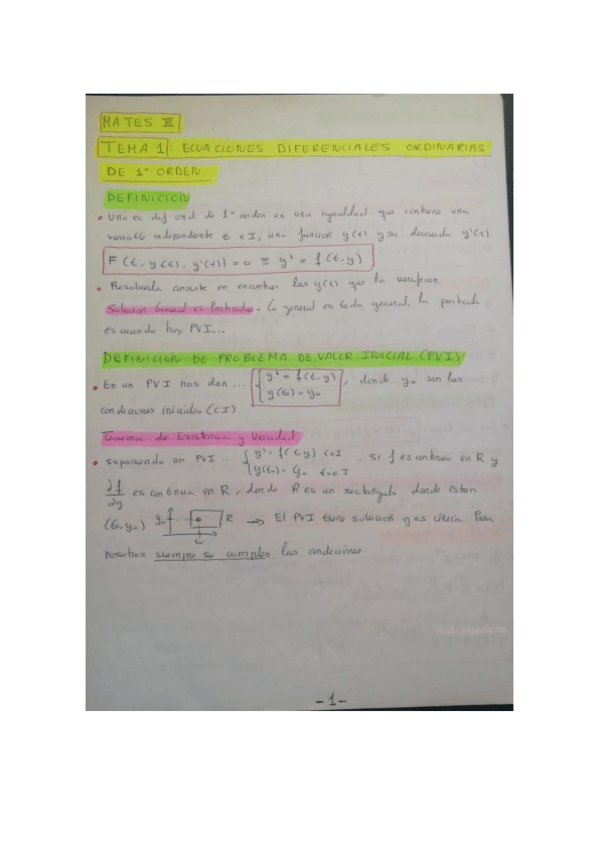 MATES III
TEMA 1: ECUACIONES DIFERENCIALES ORDINARIAS
DE 1º ORDEN
DEFINICION
• Una ec dif ord de 1º orden es una igualdad que contiene una
variable independiente t ∈ I, una función y(t) y su derivada y'(t)
F(t, y(t), y'(t)) = 0 ≡ y' = f(t,y)
• Resolverla consiste en encontrar las y(t) que la verifican.
Solucion General vs Particular. La general es todo general, la particular
es cuando hay PVI...
DEFINICIÓN DE PROBLEMA DE VALOR INICIAL (PVI)
• En un PVI nos dan... { y' = f(t,y) y(t₀) = y₀ , donde y₀ son las
condiciones iniciales (CI)
Teorema de Existencia y Unicidad
• suponiendo un PVI { y' = f(t,y) t∈I y(t₀) = y₀ t₀∈I . Si f es continua en R y
∂f/∂y es continua en R, donde R es un rectangulo donde estan
(t₀,y₀) y₀ R t₀ → El PVI tiene solucion y es única. Para
nosotros siempre se cumplen las condiciones.
Wall_Ingenieros
-1-